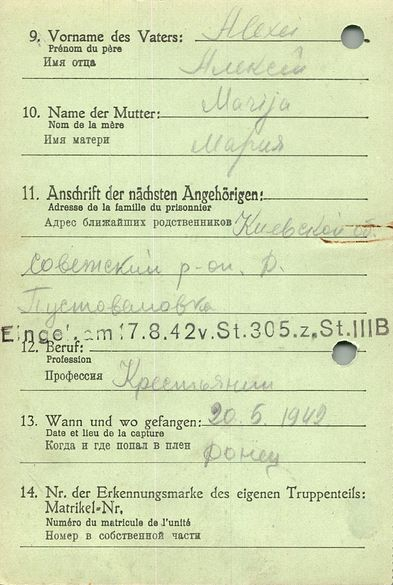 9. Vorname des Vaters: Alexei
Prénom du père
Имя отца Алексей
10. Name der Mutter: Marija
Nom de la mère
Имя матери Мария
11. Anschrift der nächsten Angehörigen:
Adresse de la famille du prisonnier
Адрес ближайших родственников Киевской об.
Советский р-он. Д.
Пустоваловка
Eingel. am 17.8.42 v. St. 305. z. St. III B
12. Beruf:
Profession
Профессия Крестьянин
13. Wann und wo gefangen: 20.5.1942
Date et lieu de la capture
Когда и где попал в плен Донец
14. Nr. der Erkennungsmarke des eigenen Truppenteils:
Matrikel-Nr.
Numéro du matricule de l'unité
Номер в собственной части